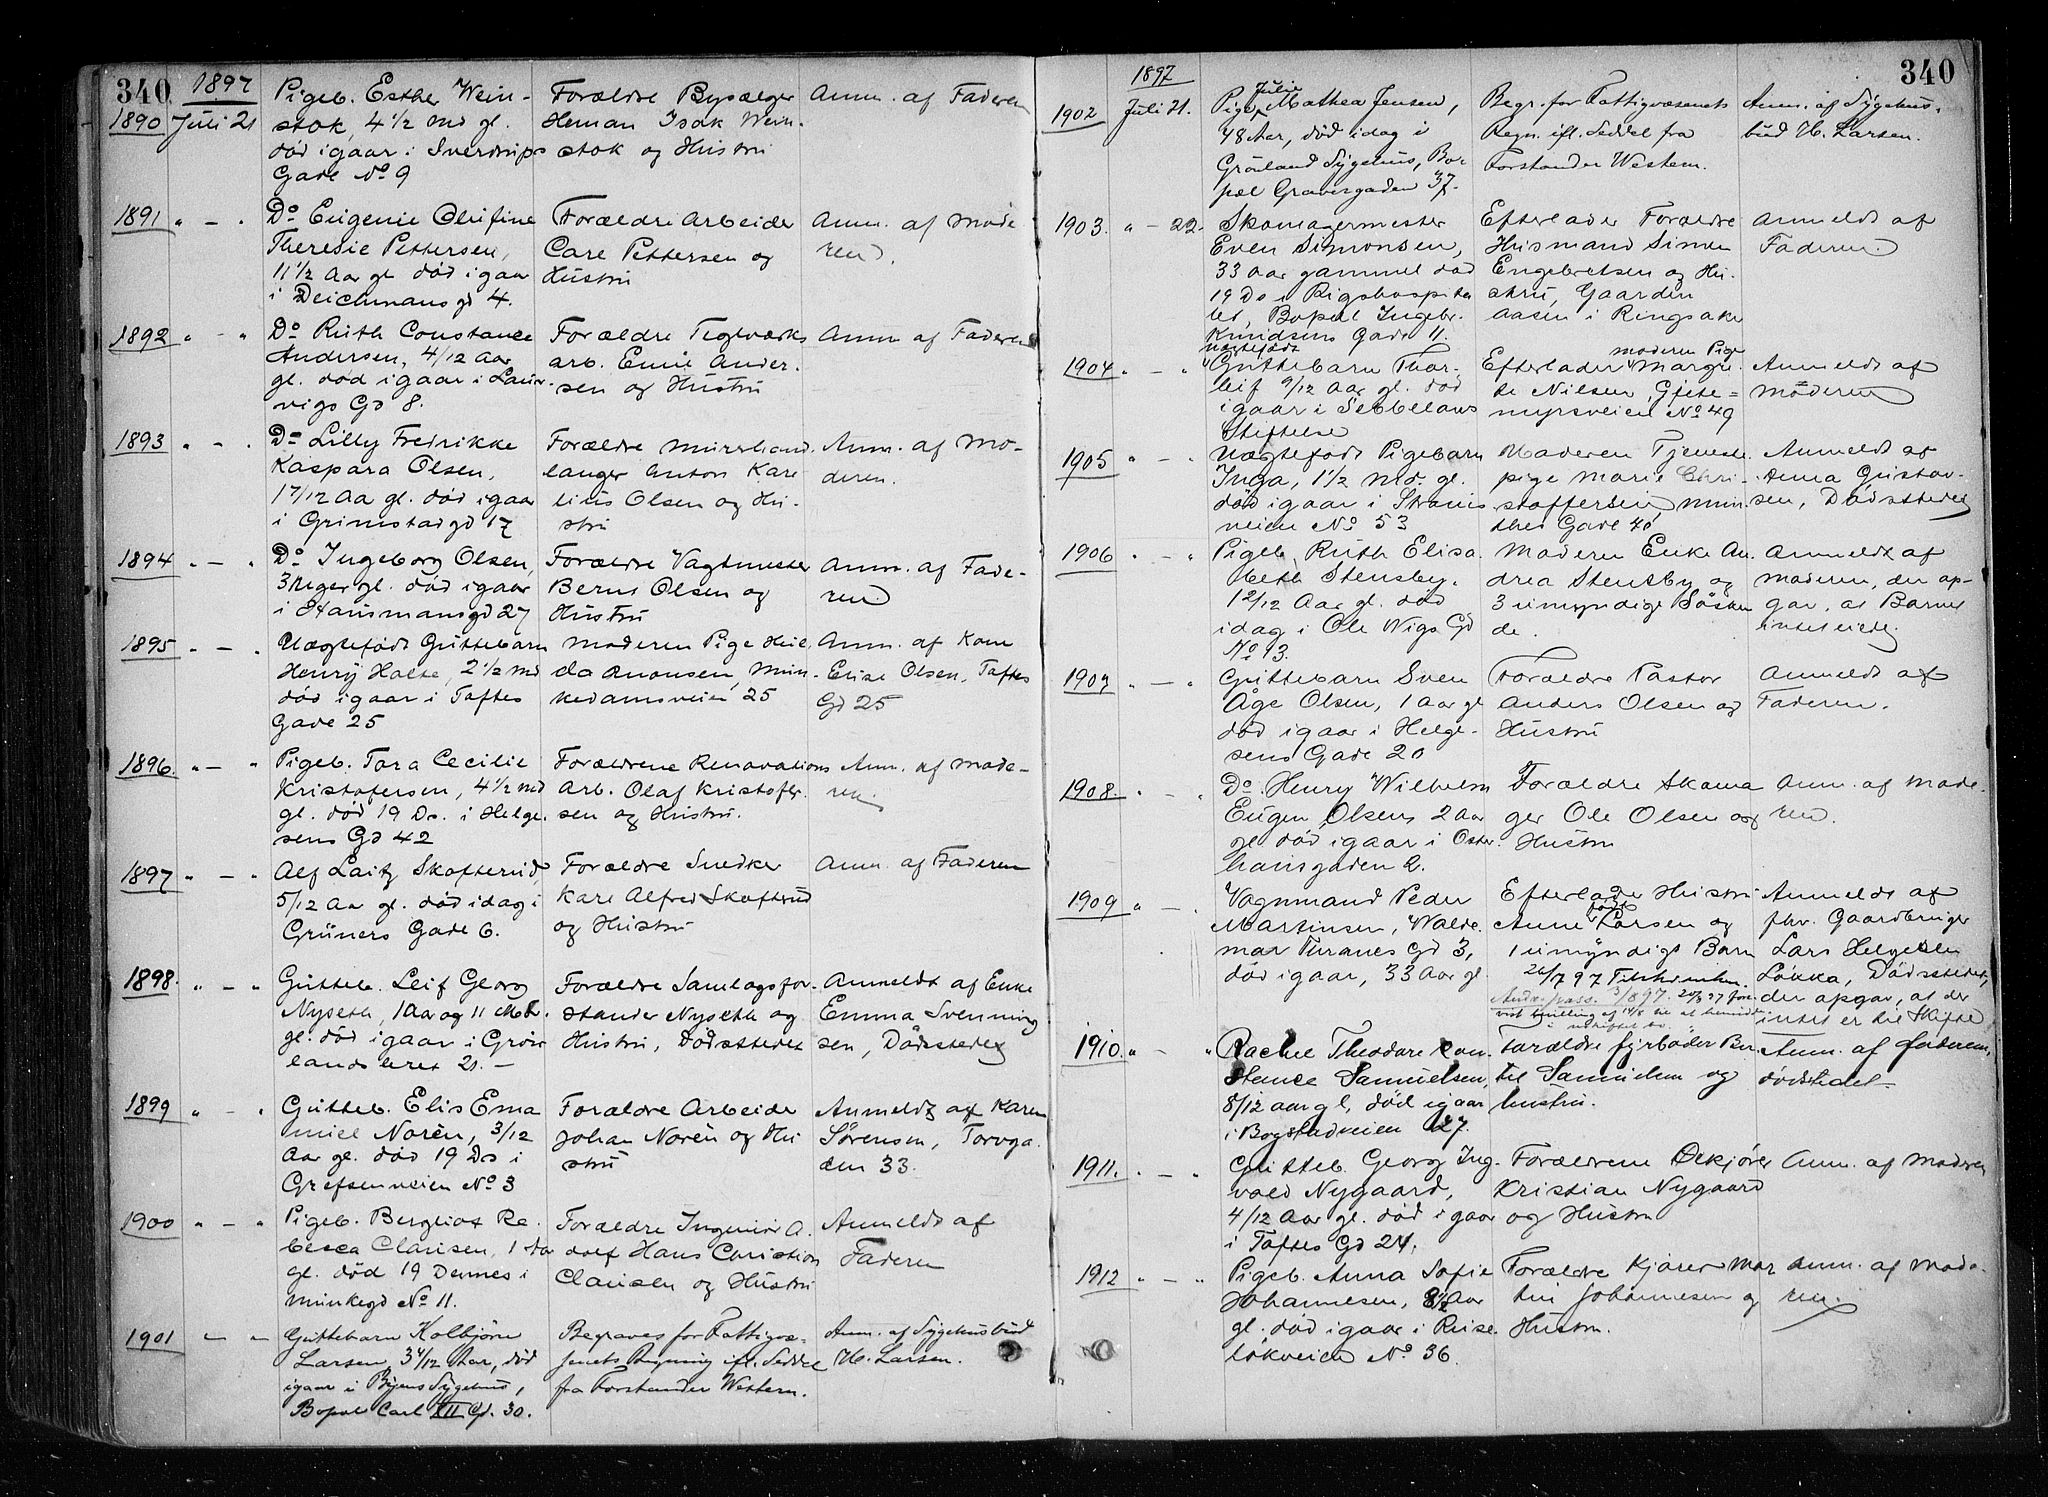 340
1897
1890 Juli 21
Pigeb. Esther Wein-
stok, 4 1/2 Md gl.
død igaar i Sverdrups
Gade No 9
Forældre Bysælger
Heman Isak Wein-
stok og Hustru
Anm. af Faderen
1891 " — "
Do Eugenie Olufine
Theresie Pettersen,
11 1/2 Aar gl død igaar
i Deichmansgd 4.
Forældre Arbeider
Carl Pettersen og
Hustru
Anm. af Mode
ren.
1892 " — "
Do Ruth Constance
Andersen, 4/12 Aar
gl. død igaar i Laur-
vigs Gd 8.
Forældre Teglværks
arb. Emil Ander-
sen og Hustru
Anm af Faderen
1893 " — "
Do Lilly Fredrikke
Kaspara Olsen,
1 7/12 Aa gl. død igaar
i Grimstadgd 17
Forældre Murerhand
langer Anton Kare
lius Olsen og Hu-
stru
Anm. af Mo-
deren.
1894 " — "
Do Ingeborg Olsen,
3 Uger gl. død igaar
i Hausmansgd 27
Forældre Vagtmester
Bernt Olsen og
Hustru
Anm. af Fade-
ren
1895 " — "
Uægtefødt Guttebarn
Henry Halte, 2 1/2 Md
død igaar i Toftes
Gade 25
Moderen Pige Hul
da Aronsen, Mun-
kedamsveien 25
Anm. af Kone
Elise Olsen, Toftes
Gd 25
1896. " — "
Pigeb. Tora Cecilie
Kristofersen, 4 1/2 Md
gl. død 19 Ds. i Helge-
sens Gd 42
Forældrene Renovations
Arb. Olaf Kristofer-
sen og Hustru.
Anm. af Mode-
ren
1897 " — "
Alf Laitz Skofterud,
5/12 Aa gl. død idag i
Grüners Gade 6.
Forældre Snedker
Karl Alfred Skofterud
og Hustru
Anm. af Faderen
1898. " — "
Gutteb. Leif Georg
Nyseth, 1 Aar og 11 Md.
gl. død igaar i Grøn
landsleret 21. —
Forældre Samlagsfor-
stander Nyseth og
Hustru, Dødsstedet
Anmeldt af Enke
Emma Svenning
sen, Dødsstedet
1899 " — "
Gutteb. Elis Ema
nuel Norèn, 3/12
Aar gl. død 19 Ds i
Grefsenveien No 3
Forældre Arbeider
Johan Norèn og Hu
stru
Anmeldt af Karen
Sørensen, Torvga
den 33.
1900 " — "
Pigeb. Bergliot Re-
becca Clausen, 1 Aar
gl. død 19 Dennes i
Munkegd No 11.
Forældre Ingeniør A-
dolf Hans Christian
Clausen og Hustru
Anmeldt af
Faderen
1901 " — "
Guttebarn Kolbjørn
Larsen, 3 4/12 Aar, død
igaar i Byens Sygehus,
Bopæl Carl XII Gd. 30.
Begraves for Fattigvæ-
senets Regning ifl. Seddel
fra Forstander Western.
Anm. af Sygehusbud
H. Larsen.
340
1897
1902 Juli 21.
Pige Julie Mathea Jensen,
48 Aar, død idag i
Grønland Sygehus, Bo-
pæl Gravergaden 37.
Begr. for Fattigvæsenets
Regn. ifl. Seddel fra
Forstander Western.
Anm. af Sygehus-
bud H. Larsen.
1903. " — 22.
Skomagermester
Even Simonsen,
33 Aar gammel død
19 Ds i Rigshospita
let, Bopæl Ingebr.
Knudsens Gade 11.
Efterlader Forældre
Husmand Simen
Engebretsen og Hu-
stru, Gaarden
Aasen i Ringsaker
Anmeldt af
Faderen.
1904 " — "
Uægtefødt
Guttebarn Thor-
leif 9/12 Aar gl. død
igaar i Sebbelows
Stiftelse
Efterlader Moderen Pige Margre
te Nilsen, Gjete-
myrsveien No 49
Anmeldt af
Moderen
1905 " — "
Uægtefødt Pigebarn
Inga, 1 1/2 Md. gl.
død igaar i Trons
veien No 53
Moderen Tjeneste
pige Marie Chri-
stoffersen, Mun-
thes Gade 40
Anmeldt af
Anna Gustav-
sen, Dødsstedet
1906 " — "
Pigeb. Ruth Elisa
beth Stensby,
1 2/12 Aar gl. død
idag i Ole Vigs Gd
No 13.
Moderen Enke An
drea Stensby og
3 umyndige Søsken
de.
Anmeldt af
Moderen, der op-
gav, at Barnet
intet eiede.
1907 " — "
Guttebarn Sven
Åge Olsen, 1 Aar gl
død igaar i Helge-
sens Gade 20
Forældre Pastor
Anders Olsen og
Hustru
Anmeldt af
Faderen.
1908. " — "
Do. Henry Wilhelm
Eugen Olsen 2 Aar
gl død igaar i Oster-
hausgaden 2.
Forældre Skoma
ger Ole Olsen og
Hustru
Anm. af Mode-
ren.
1909 " — "
Vognmand Peder
Martinsen, Walde-
mar Thranes Gd 3,
død igaar, 33 Aar gl.
Efterlader Hustru
Anne født Larsen og
1 umyndigt Barn
26/7 97
Anmeldt af
fhv. Gaardbruger
Lars Helgesen
Løkka, Dødsstedet,
der opgav, at der
intet er til Skifte
1910. " — "
Rachel Theodora Con-
stance Samuelsen,
8/12 aar gl, død igaar
i Bogstadveien 27.
Forældre fyrbøder Ber-
til Samuelsen og
hustru.
Anm. af faderen,
dødsstedet
1911. " — "
Gutteb. Georg Ing-
vald Nygaard,
4/12 Aar gl. død igaar
i Toftes Gd 24.
Forældrene Ølkjører
Kristian Nygaard
og Hustru
Anm. af Moderen
1912 " — "
Pigeb. Anna Sofie
Johannesen, 8 1/2 Aar
gl. død igaar i Ruse-
løkveien No 36.
Forældre Kjører Mar
tin Johannesen og
Hustru.
Anm. af Mode-
ren.